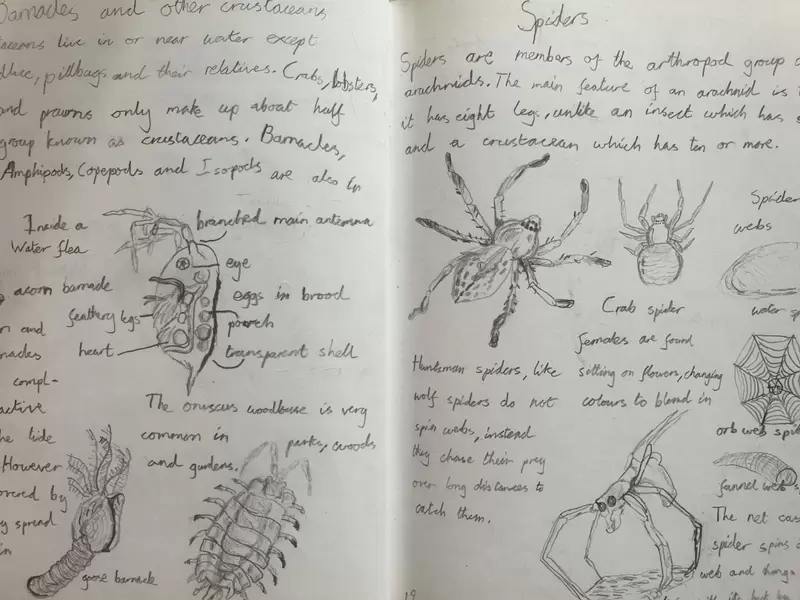 Barnacles and other crustaceans
live in or near water except
pillbugs and their relatives. Crabs, lobsters,
and prawns only make up about half
group known as crustaceans. Barnacles,
Amphipods, Copepods and Isopods are also in
Inside a
Water flea
branched main antenna
eye
eggs in brood
pouch
transparent shell
feathery legs
heart
acorn barnacle
and
compl-
active
the tide
However
by
spread
in
The onuscus woodlouse is very
common in parks, woods
and gardens.
goose barnacle
Spiders
Spiders are members of the arthropod group
arachnids. The main feature of an arachnid is
it has eight legs, unlike an insect which has
and a crustacean which has ten or more.
Spider
webs
water
Crab spider
females are found
sitting on flowers, changing
colours to blend in
Huntsman spiders, like
wolf spiders do not
spin webs, instead
they chase their prey
over long distances to
catch them.
orb web
funnel web
The net
spider spins
web and